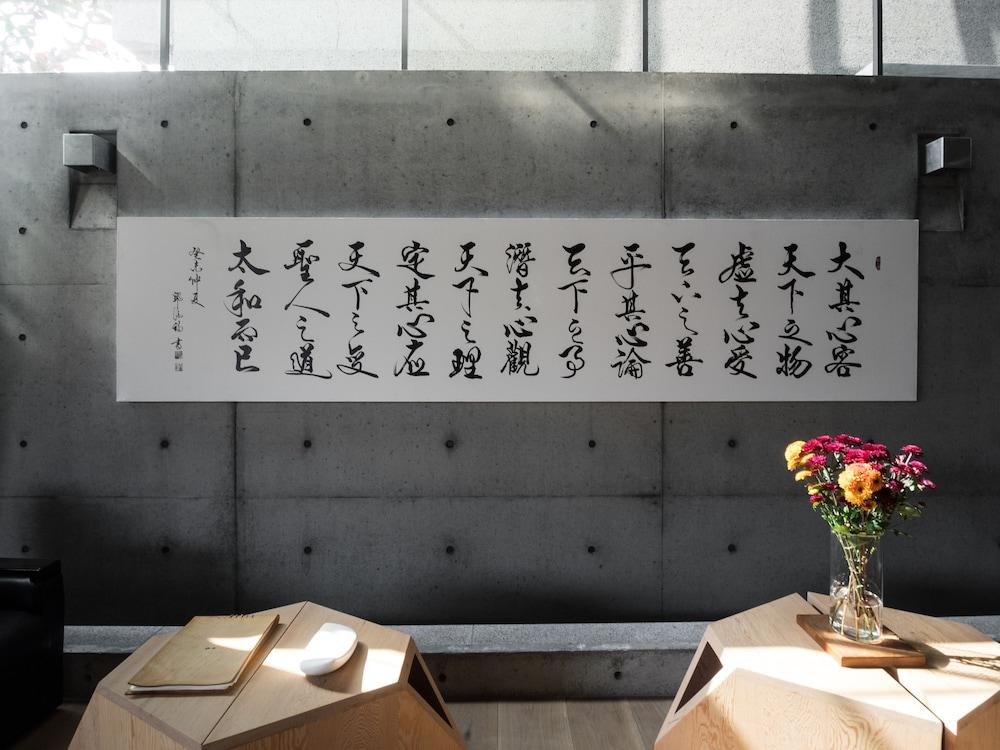 大其心容
天下之物
虛其心愛
天下之善
平其心論
天下之事
潛其心觀
天下之理
定其心應
天下之變
聖人之道
太和而已
癸未仲夏
書